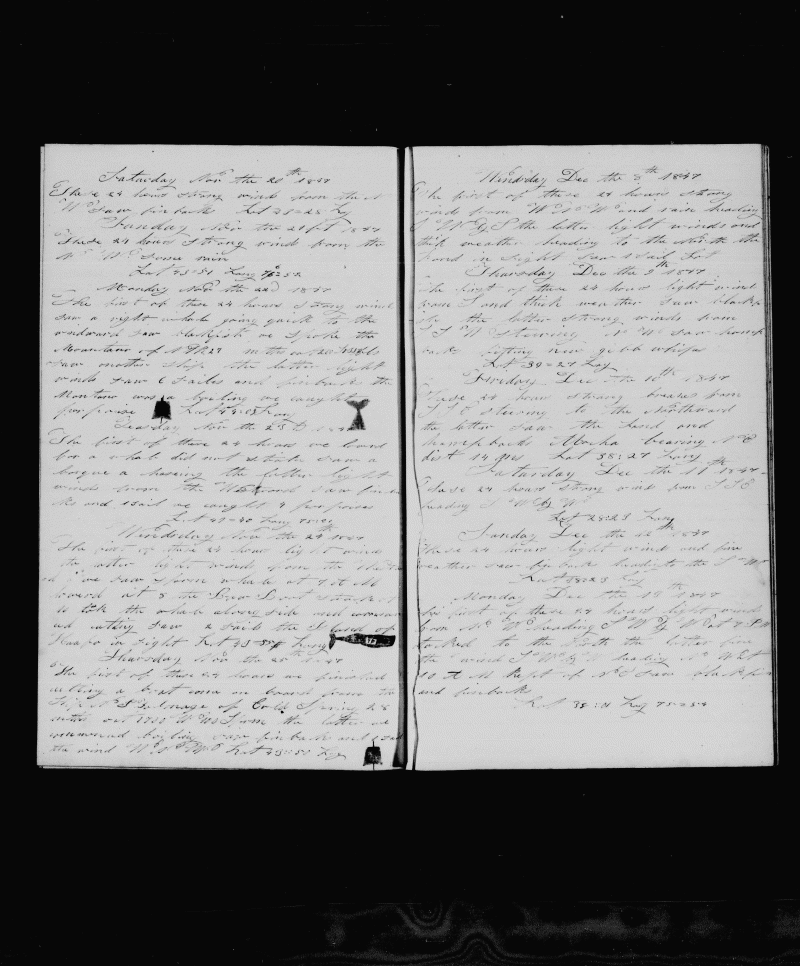 Saturday Nov the 20th 1847
These 24 hours strong wind from the N
W Saw finbacks Lat 43=28 Lg
Sunday Nov the 21st 1847
These 24 hours strong wind from the
W some rain
Lat 43=51 Long 76=52
Monday Nov the 22d 1847
The first of these 24 hours strong wind
saw a right whale going quick to the
windward saw blackfish we spoke the
Mountano of N 27 months out
saw another ship the latter right
winds saw 6 sailes and finback the
was a boiling we caught a
porpoise Lat 43=08 Long
Tuesday Nov the 23 1847
The first of these 24 hours we lowed
for a whale did not strike saw a
barque a chaseing the latter light
winds from the W saw finba
cks and 1 sail we caught 4 porpoises
Lat 43=40 Long
Wendsday Nov the 24 1847
The first of these 24 hours light wind
the latter light winds from the
we saw sperm whale at 7 A M
lowerd at 8 the Boat struck
to took the whale along side and commenc
ed cutting saw 2 sails the Island of
Huafo in sight Lat 43=55 Long
Thursday Nov the 25th 1847
The first of these 24 hours we finished
cutting a boat come on board from the
Ship of Cold Spring 28
months out 1700 W 110 Sperm the latter we
commenced boiling saw finback and 1 sail
the wind W Lat 43=50 Lg
Wendsday Dec the 8th 1847
The first of these 24 hours strong
winds from W N W and rain heading
S W by S the latter light winds and
thick weather heading to the North the
land in sight saw 1 sail Lat
Thursday Dec the 9th 1847
The first of these 24 hours light wind
from S and thick weather saw blackfi
sh the latter strong winds from
S S W Steering N W saw hump
backs setting new gibb whips
Lat 39=27 Lg
Friday Dec the 10th 1847
These 24 hours strong breazes from
S S E steering to the Northward
the latter saw the land and
humpbacks Mocha bearing N E
dist 14 Lat 38=27 Long
Saturday Dec the 11th 1847
These 24 hours strong wind from S S E
heading S W by W
Lat 38=23 Long
Sunday Dec the 12th 1847
These 24 hours light wind and fine
weather saw finback heading to the S W
Lat 38=23 Lg
Monday Dec the 13th 1847
The first of these 24 hours light winds
from heading S W by W at 8 P M
tacked to the North the latter fine
the wind S W by W heading N W at
10 A M Kept of N E saw blackfish
and finback
Lat 38=01 Lg 75=54